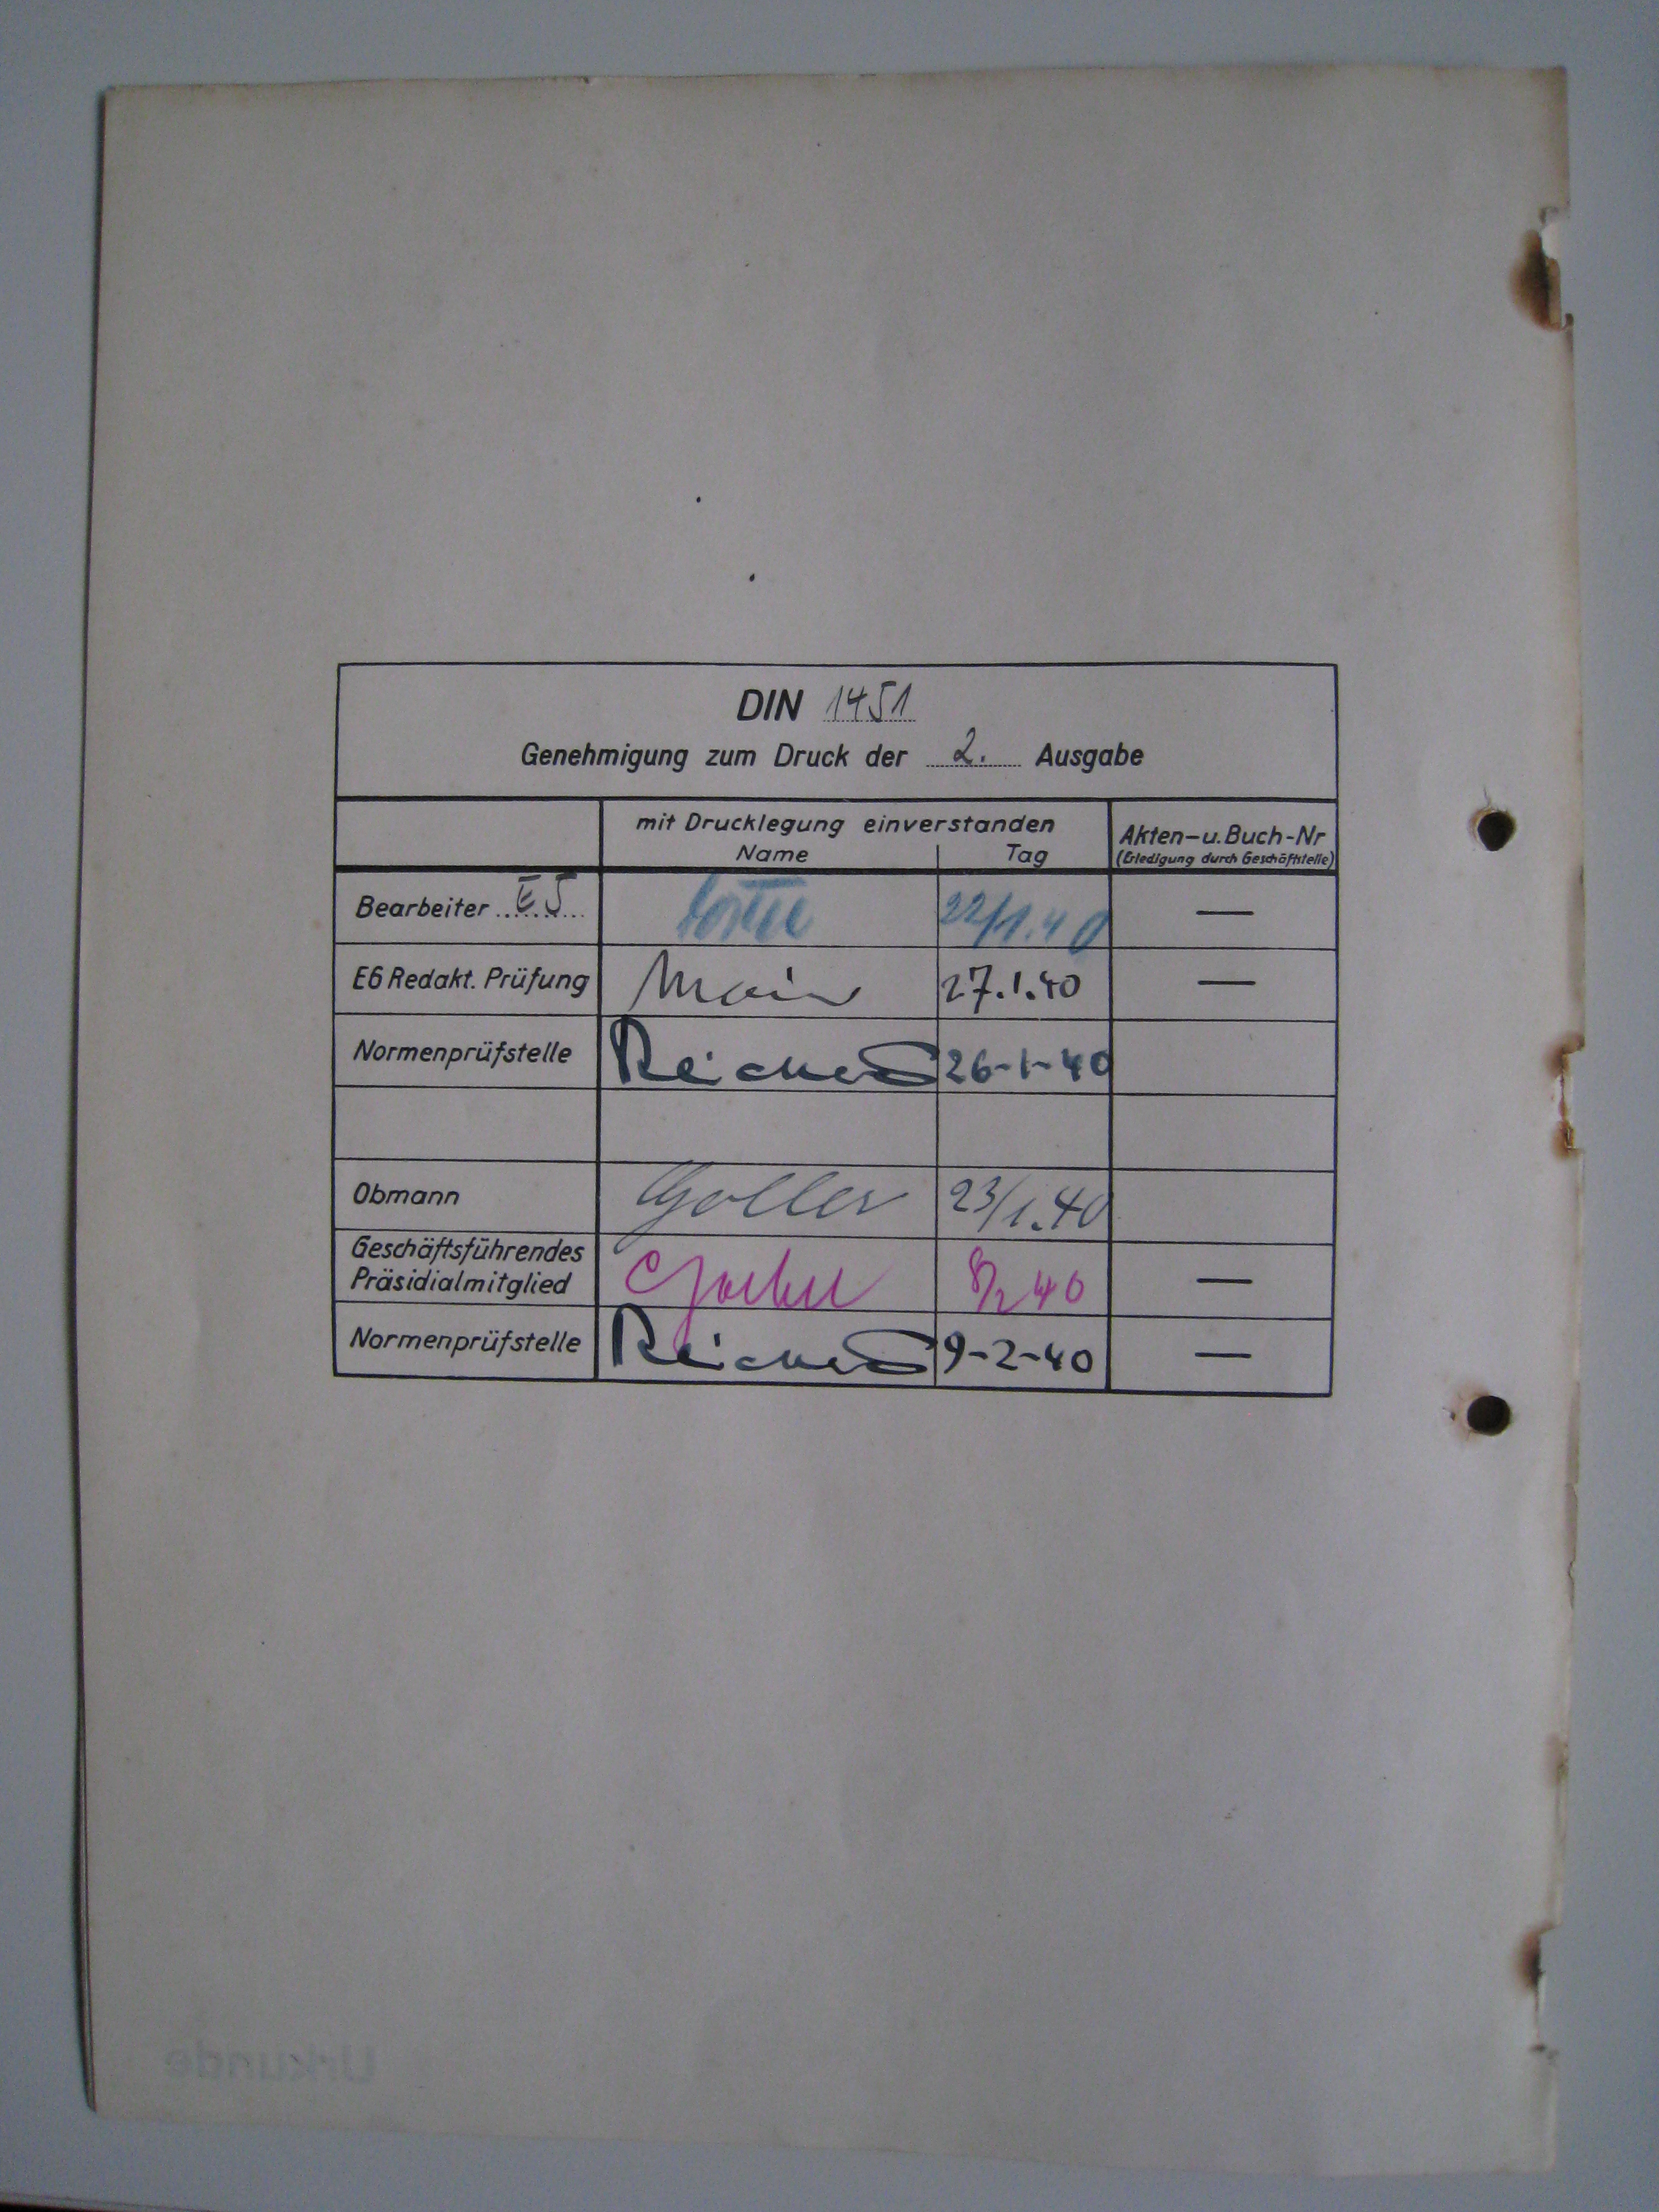 DIN 1451
Genehmigung zum Druck der 2. Ausgabe
mit Drucklegung einverstanden
Name Tag
Akten-u. Buch-Nr
(Erledigung durch Geschäftstelle)
Bearbeiter E5 22/1.40 —
E6 Redakt. Prüfung 27.1.40 —
Normenprüfstelle 26-1-40
Obmann Goller 23/1.40
Geschäftsführendes
Präsidialmitglied 8/2 40 —
Normenprüfstelle 9-2-40 —
Urkunde